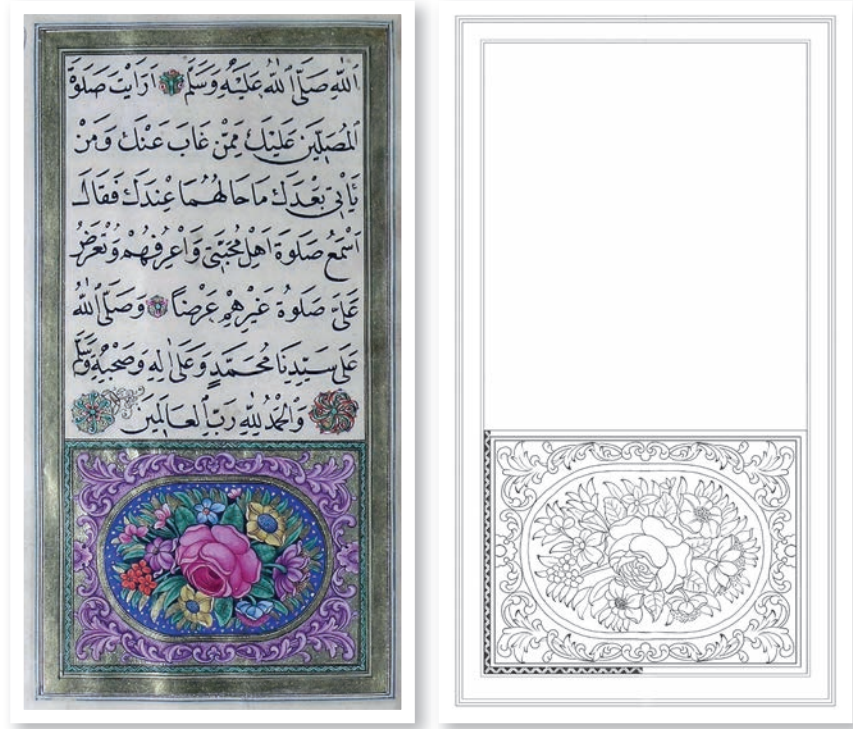 اَللّٰهِ صَلَّى اللّٰهُ عَلَيْهِ وَسَلَّمَ اَرَاَيْتَ صَلٰوةَ
الْمُصَلّ۪ينَ عَلَيْكَ مِمَّنْ غَابَ عَنْكَ وَمَنْ
يَاْت۪ي بَعْدَكَ مَا حَالُهُمَا عِنْدَكَ فَقَالَ
اَسْمَعُ صَلٰوةَ اَهْلِ مَحَبَّت۪ي وَاَعْرِفُهُمْ وَتُعْرَضُ
عَلَيَّ صَلٰوةُ غَيْرِهِمْ عَرْضًا وَصَلَّى اللّٰهُ
عَلٰى سَيِّدِنَا مُحَمَّدٍ وَعَلٰى اٰلِه۪ وَصَحْبِه۪ وَسَلَّمَ
وَالْحَمْدُ لِلّٰهِ رَبِّ الْعَالَم۪ينَ